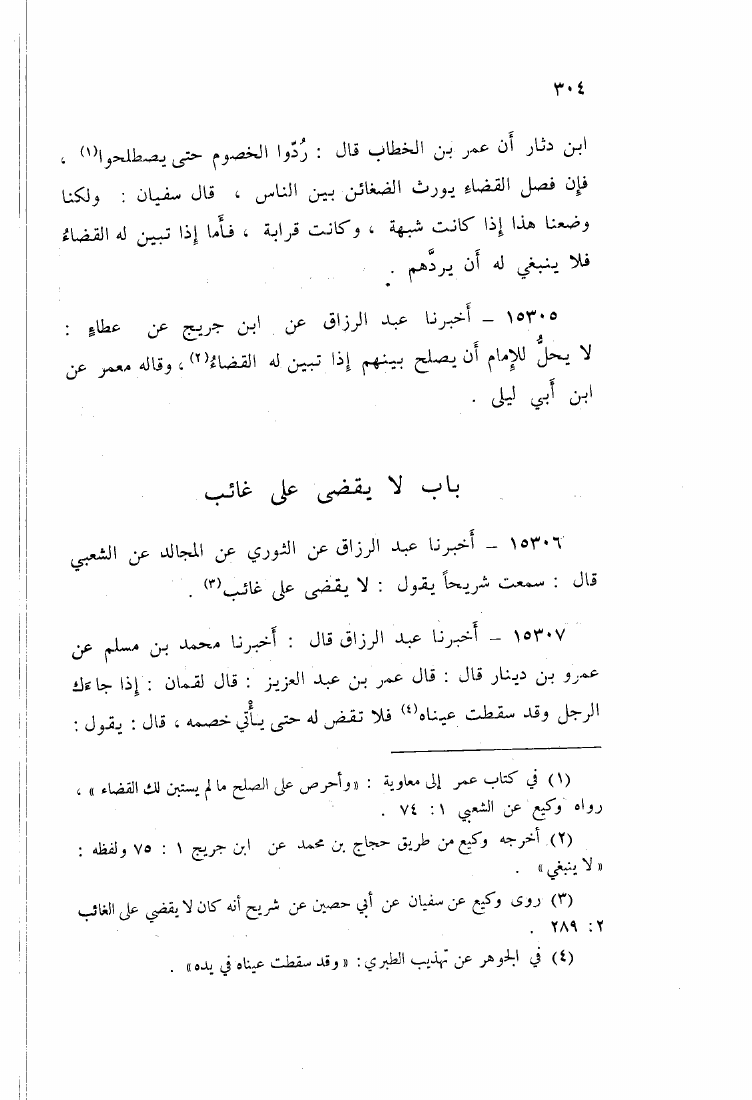 ٣٠٤
ابن دثار أن عمر بن الخطاب قال : رُدّوا الخصوم حتى يصطلحوا(١) ،
فإن فصل القضاء يورث الضغائن بين الناس ، قال سفيان : ولكنا
وضعنا هذا إذا كانت شبهة ، وكانت قرابة ، فأما إذا تبين له القضاءُ
فلا ينبغي له أن يردَّهم .
١٥٣٠٥ – أخبرنا عبد الرزاق عن ابن جريج عن عطاءٍ :
لا يحلُّ للإمام أن يصلح بينهم إذا تبين له القضاءُ(٢) ، وقاله معمر عن
ابن أبي ليلى .
باب لا يقضى على غائب
١٥٣٠٦ – أخبرنا عبد الرزاق عن الثوري عن المجالد عن الشعبي
قال : سمعت شريحاً يقول : لا يقضى على غائب(٣) .
١٥٣٠٧ – أخبرنا عبد الرزاق قال : أخبرنا محمد بن مسلم عن
عمرو بن دينار قال : قال عمر بن عبد العزيز : قال لقمان : إذا جاءَك
الرجل وقد سقطت عيناه(٤) فلا تقض له حتى يأْتي خصمه ، قال : يقول :
(١) في كتاب عمر إلى معاوية : «وأحرص على الصلح ما لم يستبن لك القضاء » ،
رواه وكيع عن الشعبي ١ : ٧٤ .
(٢) أخرجه وكيع من طريق حجاج بن محمد عن ابن جريج ١ : ٧٥ ولفظه :
« لا ينبغي» .
(٣) روى وكيع عن سفيان عن أبي حصين عن شريح أنه كان لا يقضي على الغائب
٢ : ٢٨٩ .
(٤) في الجوهر عن تهذيب الطبري : « وقد سقطت عيناه في يده» .